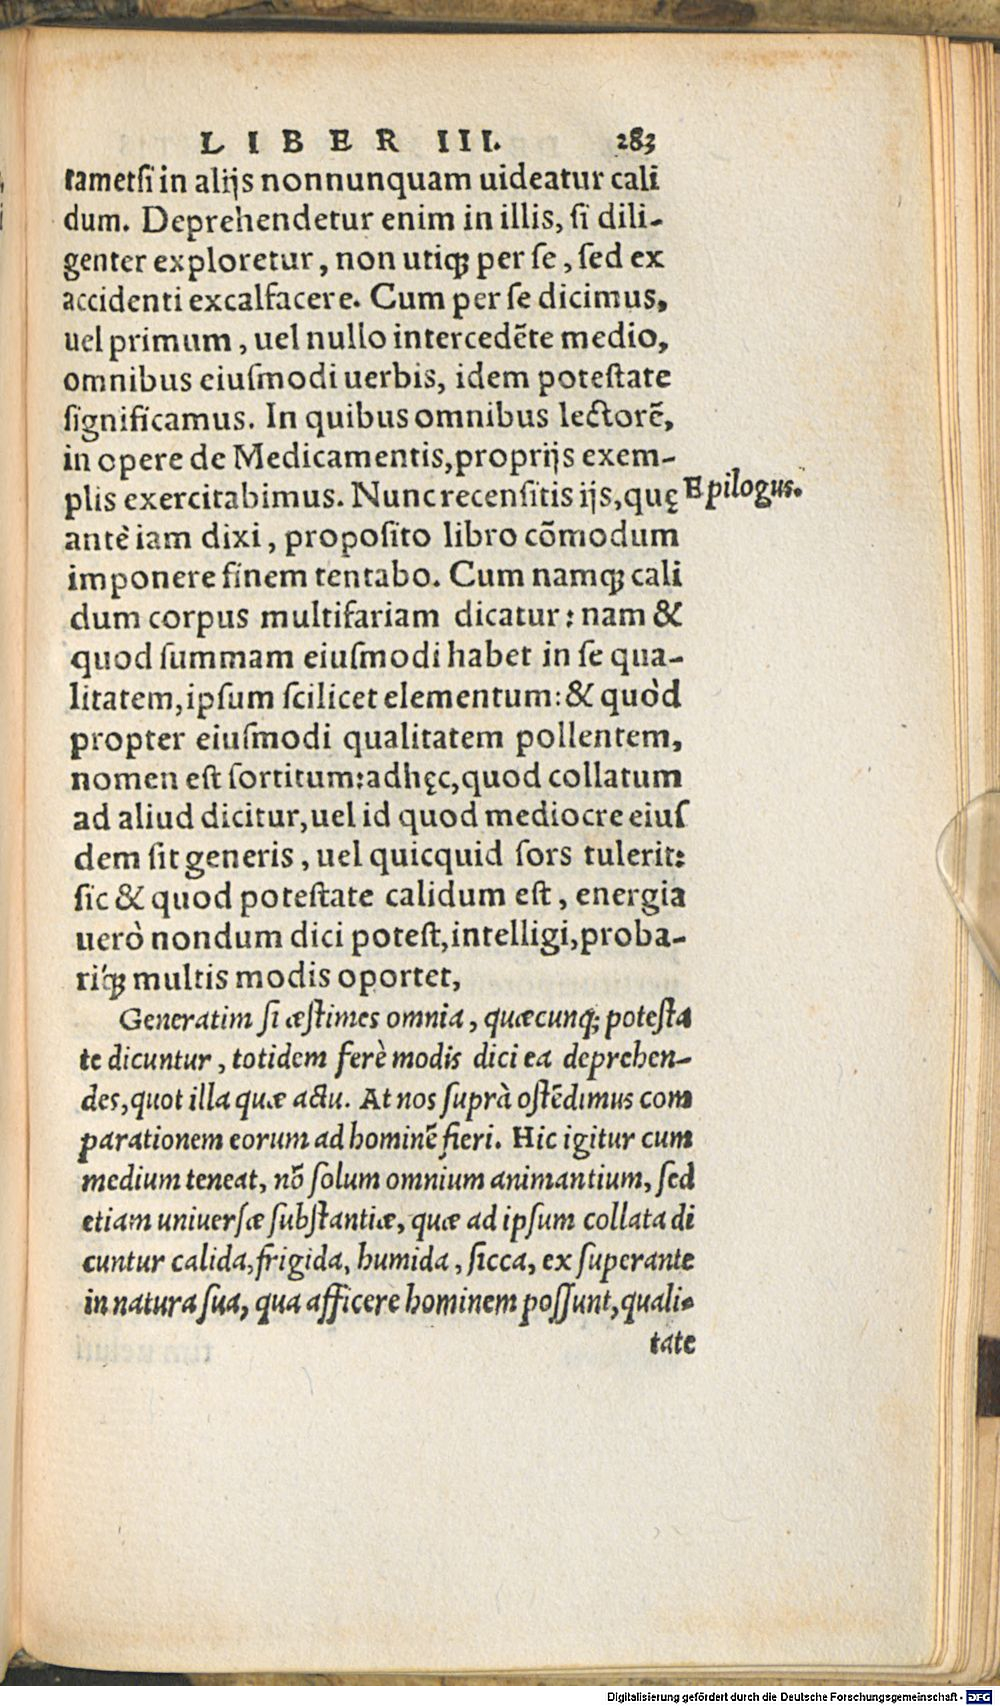 LIBER III. 283
tametsi in alijs nonnunquam uideatur cali
dum. Deprehendetur enim in illis, si dili-
genter exploretur, non utiqꝫ per se, sed ex
accidenti excalfacere. Cum per se dicimus,
uel primum, uel nullo intercedẽte medio,
omnibus eiusmodi uerbis, idem potestate
significamus. In quibus omnibus lectorẽ,
in opere de Medicamentis, proprijs exem-
plis exercitabimus. Nunc recensitis ijs, quę
Epilogus.
antè iam dixi, proposito libro cõmodum
imponere finem tentabo. Cum namqꝫ cali
dum corpus multifariam dicatur: nam &
quod summam eiusmodi habet in se qua-
litatem, ipsum scilicet elementum: & quòd
propter eiusmodi qualitatem pollentem,
nomen est sortitum: adhęc, quod collatum
ad aliud dicitur, uel id quod mediocre eius
dem sit generis, uel quicquid sors tulerit:
sic & quod potestate calidum est, energia
uerò nondum dici potest, intelligi, proba-
ri'qꝫ multis modis oportet,
Generatim si æstimes omnia, quæcunqꝫ potesta
te dicuntur, totidem ferè modis dici ea deprehen-
des, quot illa quæ actu. At nos suprà ostẽdimus com
parationem eorum ad hominẽ fieri. Hic igitur cum
medium teneat, nõ solum omnium animantium, sed
etiam uniuersæ substantiæ, quæ ad ipsum collata di
cuntur calida, frigida, humida, sicca, ex superante
in natura sua, qua afficere hominem possunt, quali-
tate
Digitalisierung gefördert durch die Deutsche Forschungsgemeinschaft - DFG